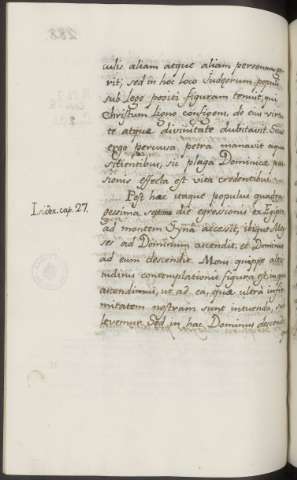 culis aliam atque aliam personam ge-
rit; sed in hoc loco Judæorum populi
sub lege positi figuram tenuit, qui
Christum ligno configens, de eius virtu-
te atque divinitate dubitavit. Sicut
ergo percussa petra manavit aquam
sitientibus, sic plaga Dominicæ pas-
sionis effecta est vita credentibus.
Post hæc itaque populus quadra-
gessima septima die egressionis ex Egypto
ad montem Synà accessit, ibique Moy-
ses ad Dominum ascendit, et Dominus
ad eum descendit. Mons quippe alti-
tudinis contemplationis figura est, in quem
ascendimus, ut ad ea, quæ ultra infir-
mitatem nostram sunt intuenda, sub-
levemur. Sed in hac Dominus descendit
Isidor. cap. 27.